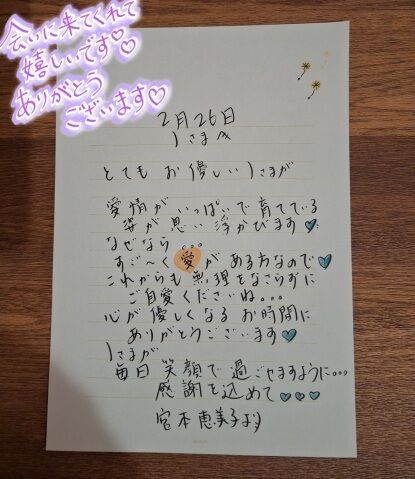 会いに来てくれて
嬉しいです♡
ありがとう
ございます♡
2月26日
Iさまへ
とても お優しいIさまが
愛情が いっぱいで育てている
姿が 思い浮かびます♡
なぜなら。。。
すご~く愛がある方なので♡
これからも無理をなさらずに
ご自愛くださいね。。。
心が優しくなる お時間に
ありがとうございます♡
Iさまが
毎日 笑顔で過ごせますように。。。
感謝を込めて♡♡♡
宮本恵美子より